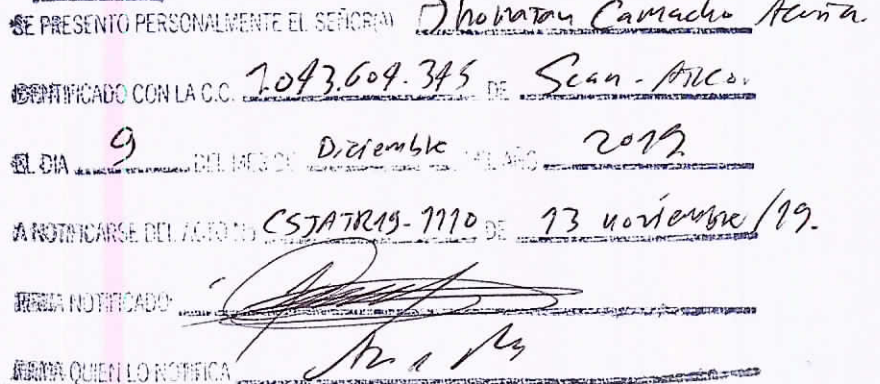 SE PRESENTO PERSONALMENTE EL SEÑOR(A) Dhonatan Camacho Acuña.
IDENTIFICADO CON LA C.C. 1.043.604.345 DE Scan - Atlco.
EL DIA 9 DEL MES DE Diciembre DEL AÑO 2019
A NOTIFICARSE DEL ACTO No CSJATR19-1110 DE 13 noviembre/19.
FIRMA NOTIFICADO:
FIRMA QUIEN LO NOTIFICA